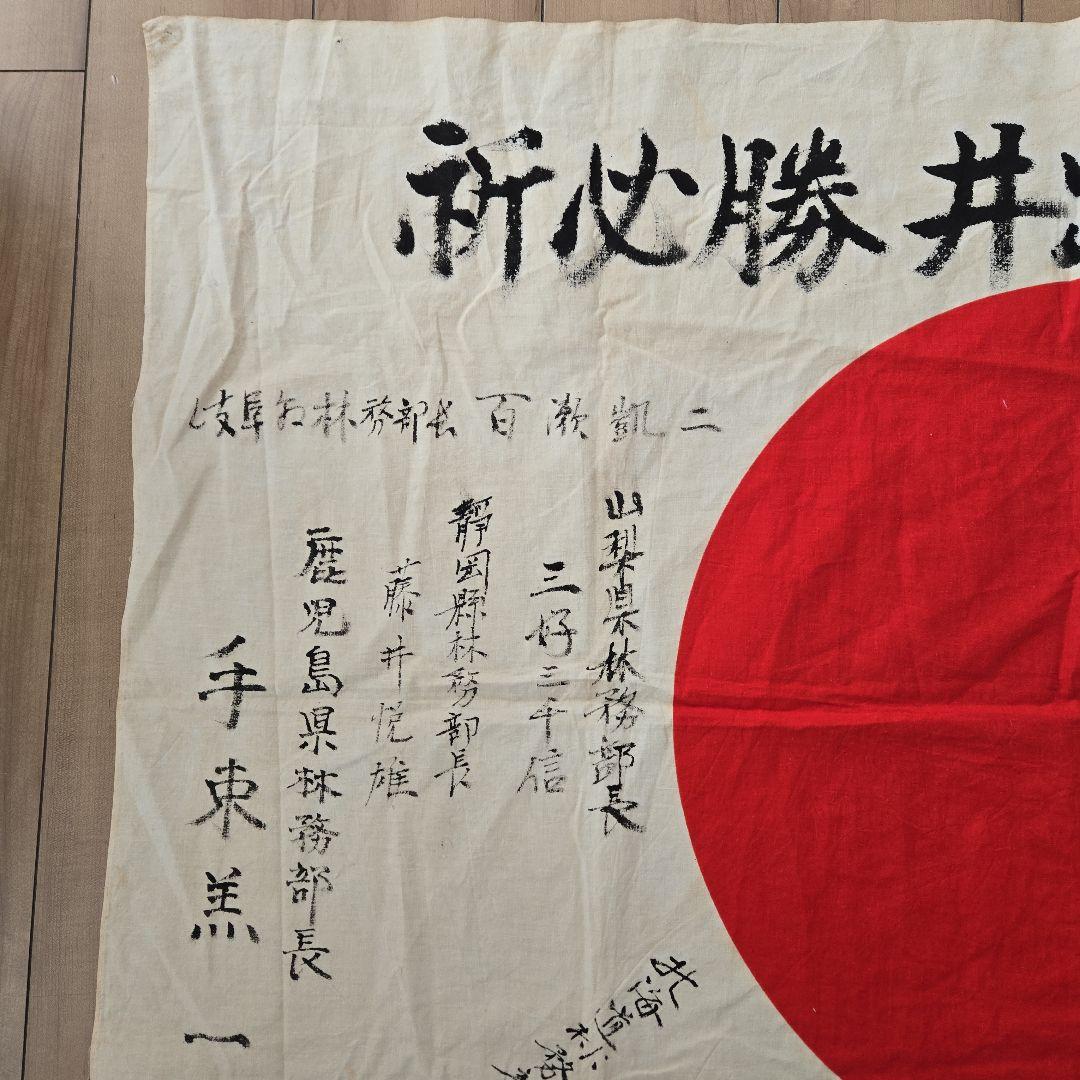 祈必勝 井
岐阜縣林務部長 百瀬凱二
山梨県林務部長
三好三千信
靜岡縣林務部長
藤井悦雄
鹿児島県林務部長
手束羔一
北海道林務